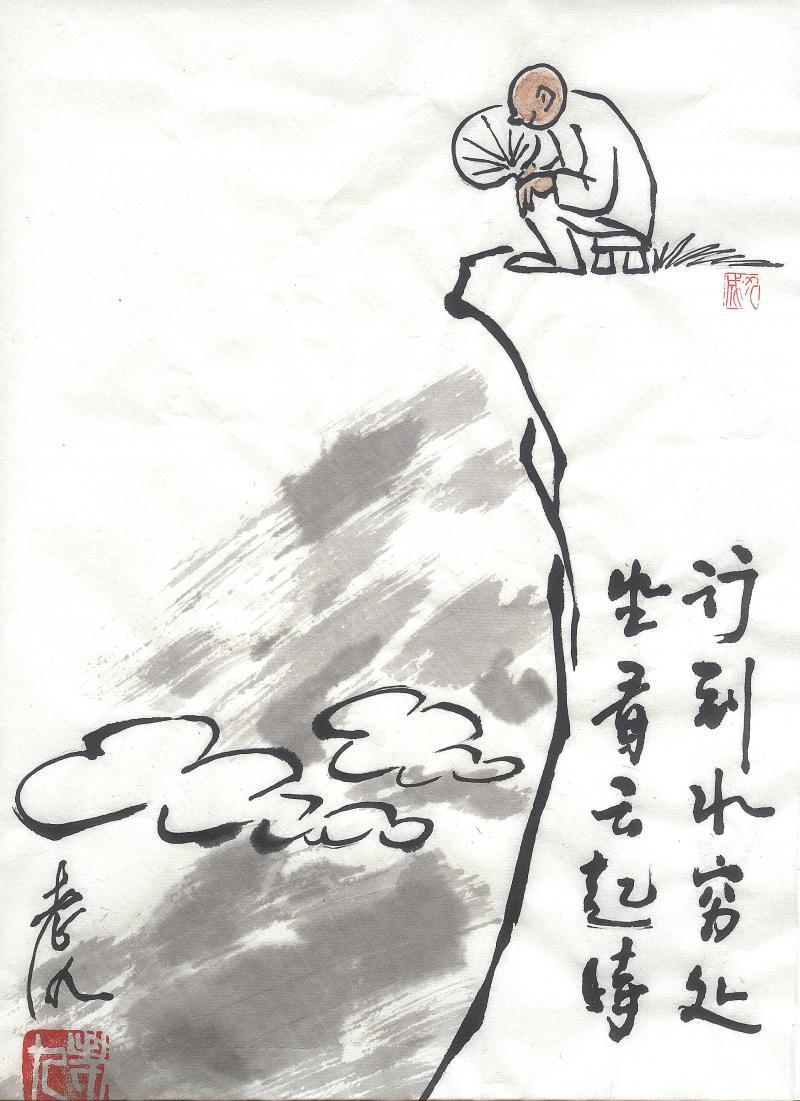 行到水穷处
坐看云起时
老九